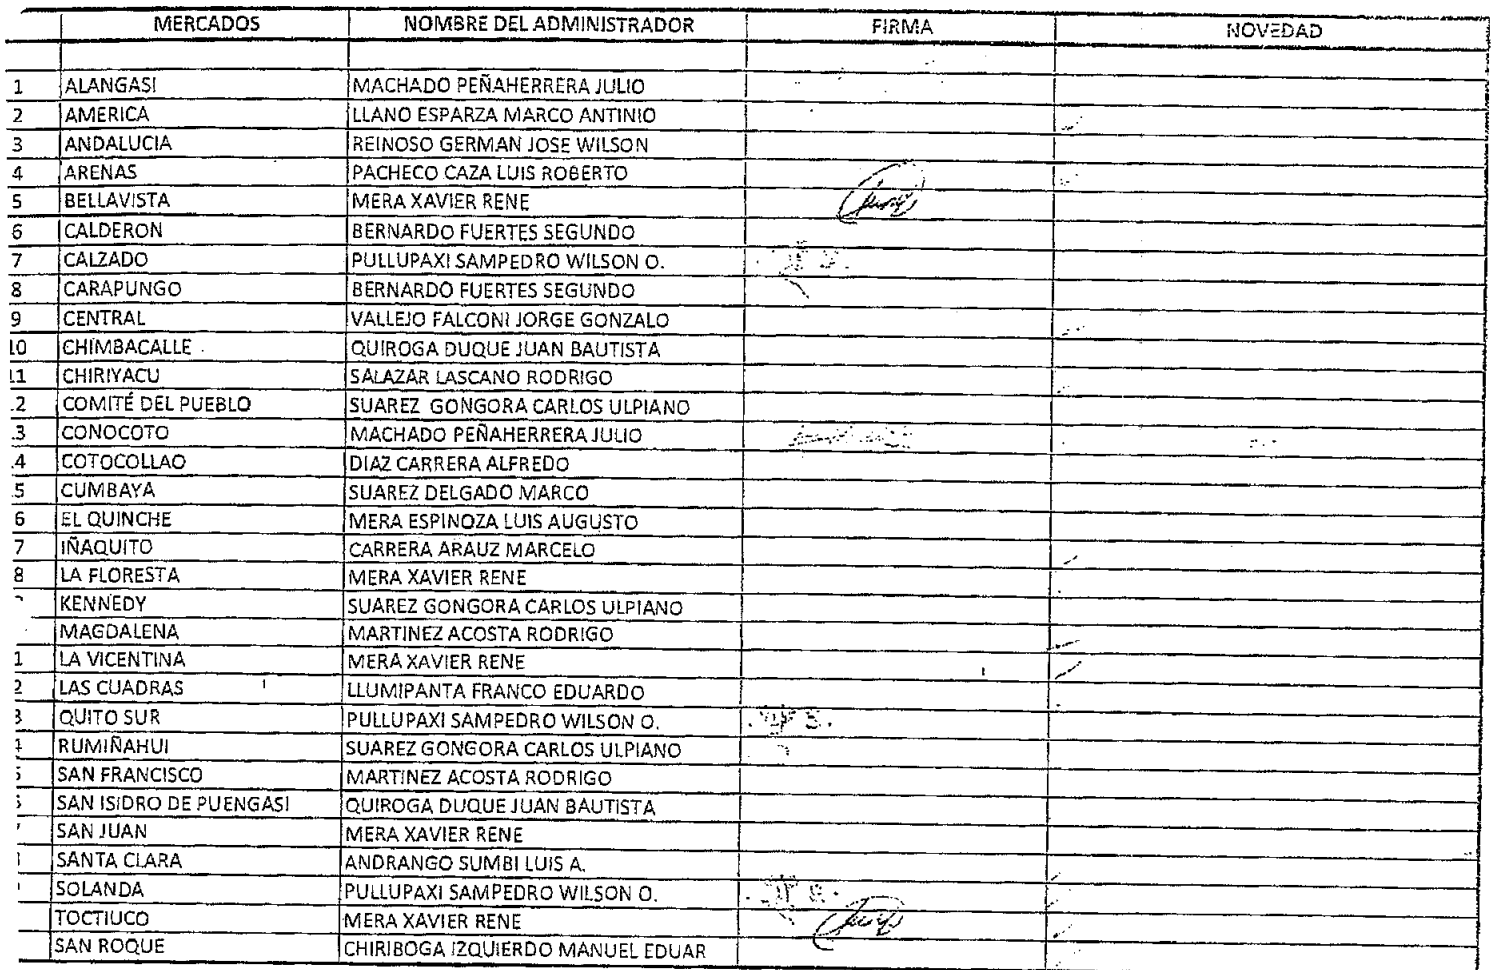 MERCADOS NOMBRE DEL ADMINISTRADOR FIRMA NOVEDAD
1 ALANGASI MACHADO PEÑAHERRERA JULIO
2 AMERICA LLANO ESPARZA MARCO ANTINIO
3 ANDALUCIA REINOSO GERMAN JOSE WILSON
4 ARENAS PACHECO CAZA LUIS ROBERTO
5 BELLAVISTA MERA XAVIER RENE
6 CALDERON BERNARDO FUERTES SEGUNDO
7 CALZADO PULLUPAXI SAMPEDRO WILSON O.
8 CARAPUNGO BERNARDO FUERTES SEGUNDO
9 CENTRAL VALLEJO FALCONI JORGE GONZALO
10 CHIMBACALLE QUIROGA DUQUE JUAN BAUTISTA
11 CHIRIYACU SALAZAR LASCANO RODRIGO
2 COMITÉ DEL PUEBLO SUAREZ GONGORA CARLOS ULPIANO
3 CONOCOTO MACHADO PEÑAHERRERA JULIO
4 COTOCOLLAO DIAZ CARRERA ALFREDO
5 CUMBAYA SUAREZ DELGADO MARCO
6 EL QUINCHE MERA ESPINOZA LUIS AUGUSTO
7 IÑAQUITO CARRERA ARAUZ MARCELO
8 LA FLORESTA MERA XAVIER RENE
KENNEDY SUAREZ GONGORA CARLOS ULPIANO
MAGDALENA MARTINEZ ACOSTA RODRIGO
1 LA VICENTINA MERA XAVIER RENE
2 LAS CUADRAS LLUMIPANTA FRANCO EDUARDO
3 QUITO SUR PULLUPAXI SAMPEDRO WILSON O.
RUMIÑAHUI SUAREZ GONGORA CARLOS ULPIANO
SAN FRANCISCO MARTINEZ ACOSTA RODRIGO
SAN ISIDRO DE PUENGASI QUIROGA DUQUE JUAN BAUTISTA
SAN JUAN MERA XAVIER RENE
SANTA CLARA ANDRANGO SUMBI LUIS A.
SOLANDA PULLUPAXI SAMPEDRO WILSON O.
TOCTIUCO MERA XAVIER RENE
SAN ROQUE CHIRIBOGA IZQUIERDO MANUEL EDUAR